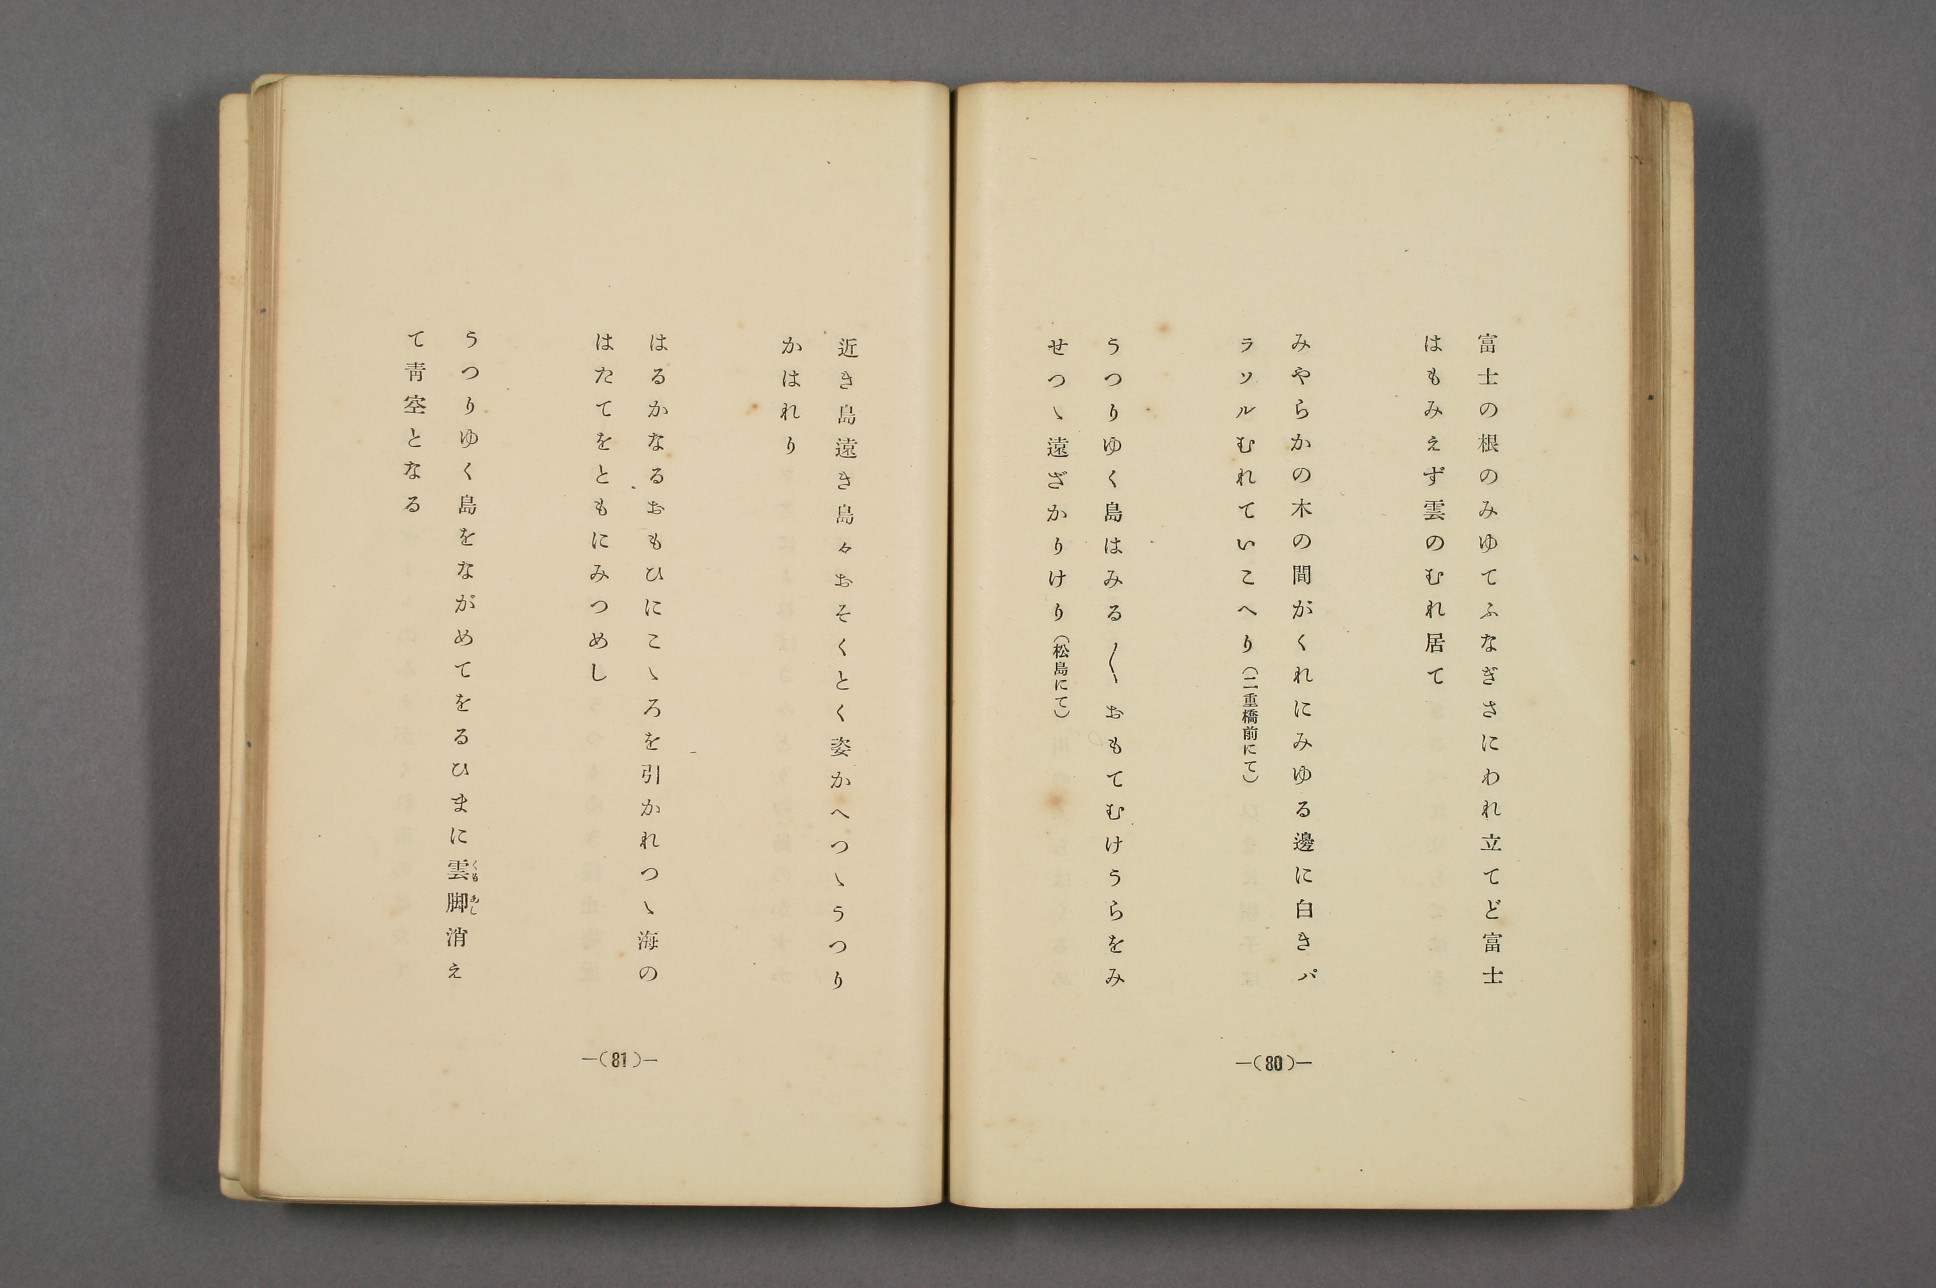 富士の根のみゆてふなぎさにわれ立てど富士
はもみえず雲のむれ居て
みやらかの木の間がくれにみゆる邊に白きパ
ラソルむれていこへり(二重橋前にて)
うつりゆく島はみる〳〵おもてむけうらをみ
せつゝ遠ざかりけり(松島にて)
—(80)—
近き島遠き島々おそくとく姿かへつゝうつり
かはれり
はるかなるおもひにこゝろを引かれつゝ海の
はたてをともにみつめし
うつりゆく島をながめてをるひまに雲脚消え
くも あし
て靑空となる
—(81)—